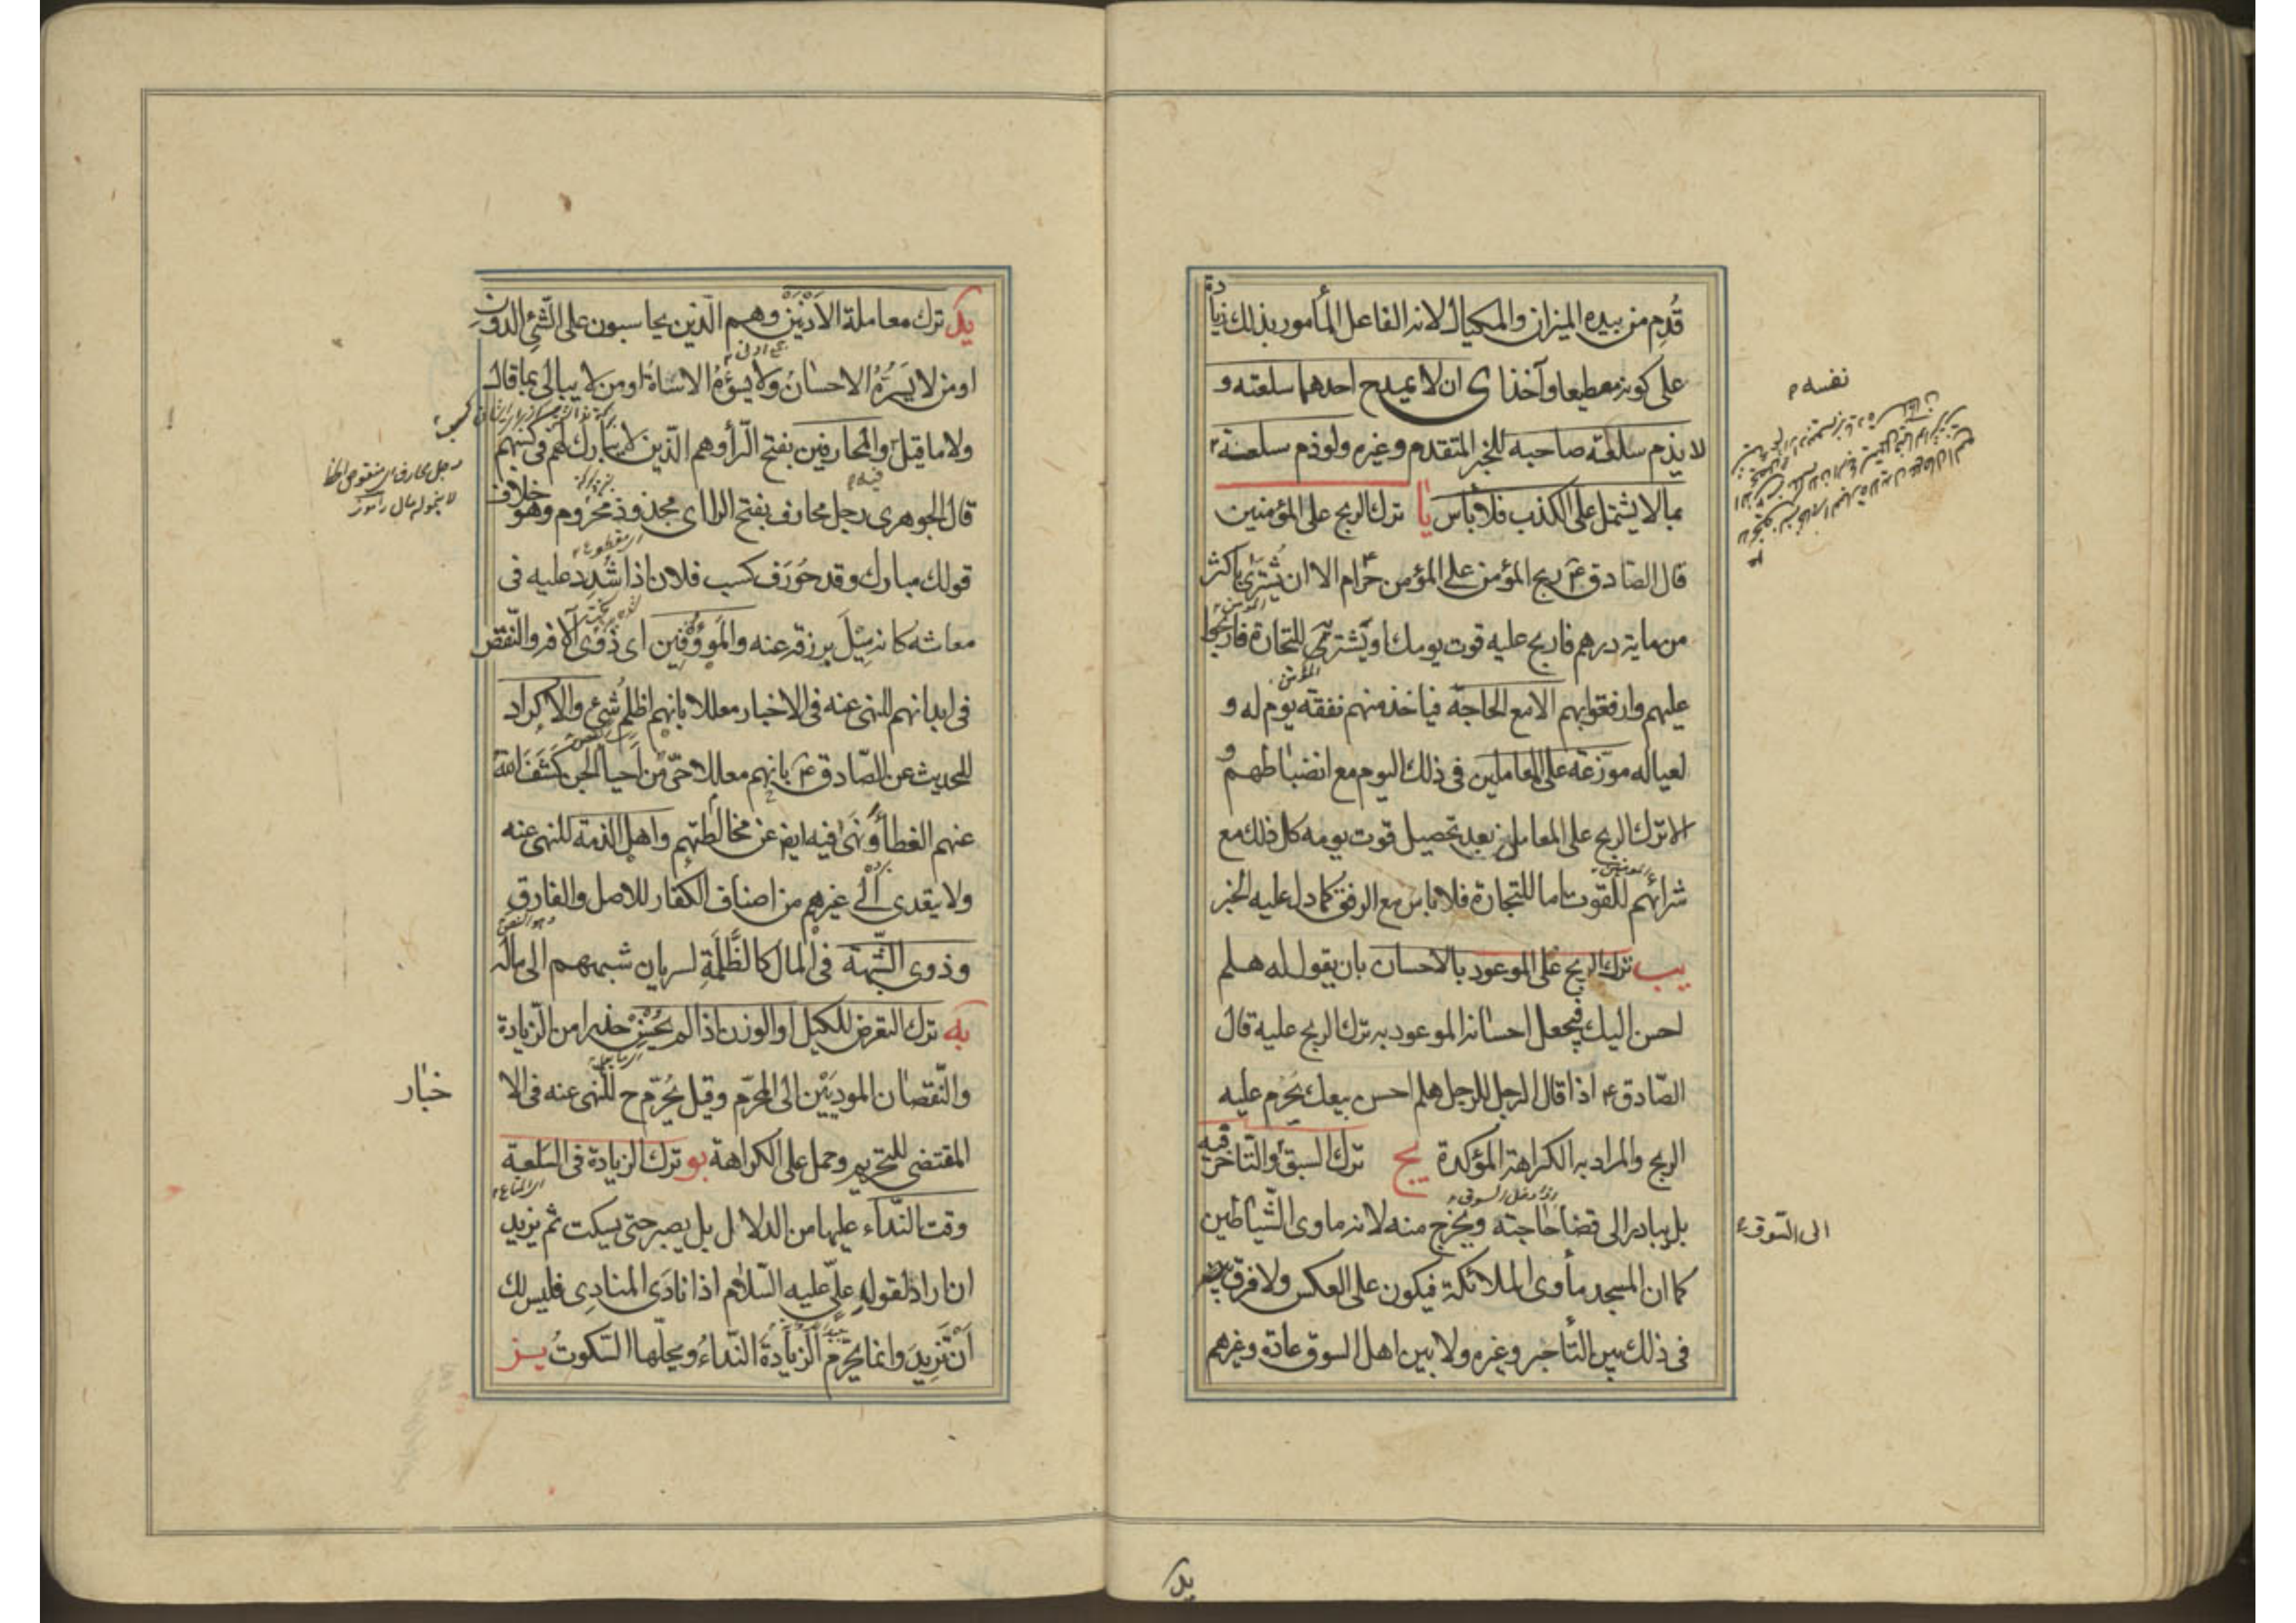 قُدِم من بيده الميزان والمكيال لانه الفاعل المأمور بذلك زيادة
على كونه معطيا وآخذا ى ان لا يمدح احدهما سلعته و
لا يذم سلعة صاحبه للخبر المتقدم وغيره ولو ذم سلعته
بما لا يشتمل على الكذب فلا بأس يا ترك الربح على المؤمنين
قال الصادق ع ربح المؤمن على المؤمن حرام الا ان يشترى باكثر
من ماية درهم فاربح عليه قوت يومك او يشتريه للتجارة فاربحوا
عليهم وارفقوا بهم الا مع الحاجة فياخذ منهم نفقة يوم له و
لعياله موزعة على المعاملين فى ذلك اليوم مع انضباطهم و
الا ترك الربح على المعاملين بعد تحصيل قوت يومه كل ذلك مع
شرائهم للقوت اما للتجارة فلا باس مع الرفق كما دل عليه الخبر
يب ترك الربح على الموعود بالاحسان بان يقول له هلم
احسن اليك فيجعل احسانه الموعود به ترك الربح عليه قال
الصّادق ع اذا قال الرجل للرجل هلم احسن بيعك يحرم عليه
الربح والمراد به الكراهة المؤكدة يج ترك السبق والتأخر فيه
بل يبادر الى قضا حاجته ويخرج منه لانه ماوى الشّياطين
كما ان المسجد مأوى الملائكة فيكون على العكس ولا فرق
فى ذلك بين التأجر وغيره ولا بين اهل السوق عادة وغيرهم
نفسه
الى السّوق
يد
يد ترك معاملة الأدْنَيْن وهم الّذين يحاسبون على الشّئ الدون
او من لا يَسُرُّهُ الاحسانُ ولا يسوءُهُ الاساة او من لا يبالى بما قال
ولا ما قيل والمحارفين بفتح الرّأ وهم الّذين لا يبارك لهم فى كسبهم
قال الجوهرى رجل محارف بفتح الرا اى مجذوذ محروم وهو خلاف
قولك مبارك وقد حُورَف كسب فلان اذا شُدِد عليه فى
معاشه كانه مِيْلَ برزقه عنه والمؤوفين اى ذوى الآفة والنّقص
فى ابدانهم للنهى عنه فى الاخبار معللا بانهم اظلم شئ والاكراد
للحديث عن الصّادق ع بانهم معللا حىّ من احيأ الجن كَشَفَ الله
عنهم الغطأ ونهى فيه ايضا عن مخالطتهم واهل الذمة للنهى عنه
ولا يتعدى الى غيرهم من اصناف الكفار للاصل والفارق
وذوى الشّبهة فى المال كالظَّلَمَةِ لسريان شبههم الى ماله
يه ترك التعرض للكيل او الوزن اذا لم يُحْسِن حذرا من الزّيادة
والنّقصان الموديَيْن الى المحرّم وقيل يُحرّم ح للنهى عنه فى الا
المقتضى للتحريم وحمل على الكراهة يو ترك الزيادة فى السّلعة
وقت النّداء عليها من الدلال بل يصبر حتى يسكت ثم يزيد
ان اراد لقول علىّ عليه السّلام اذا نادَى المنادِى فليس لك
أنْ تَزِيدَ وانما يحرّم الزيادةَ النّداءُ ويحلّها السّكوتُ يز
خبار